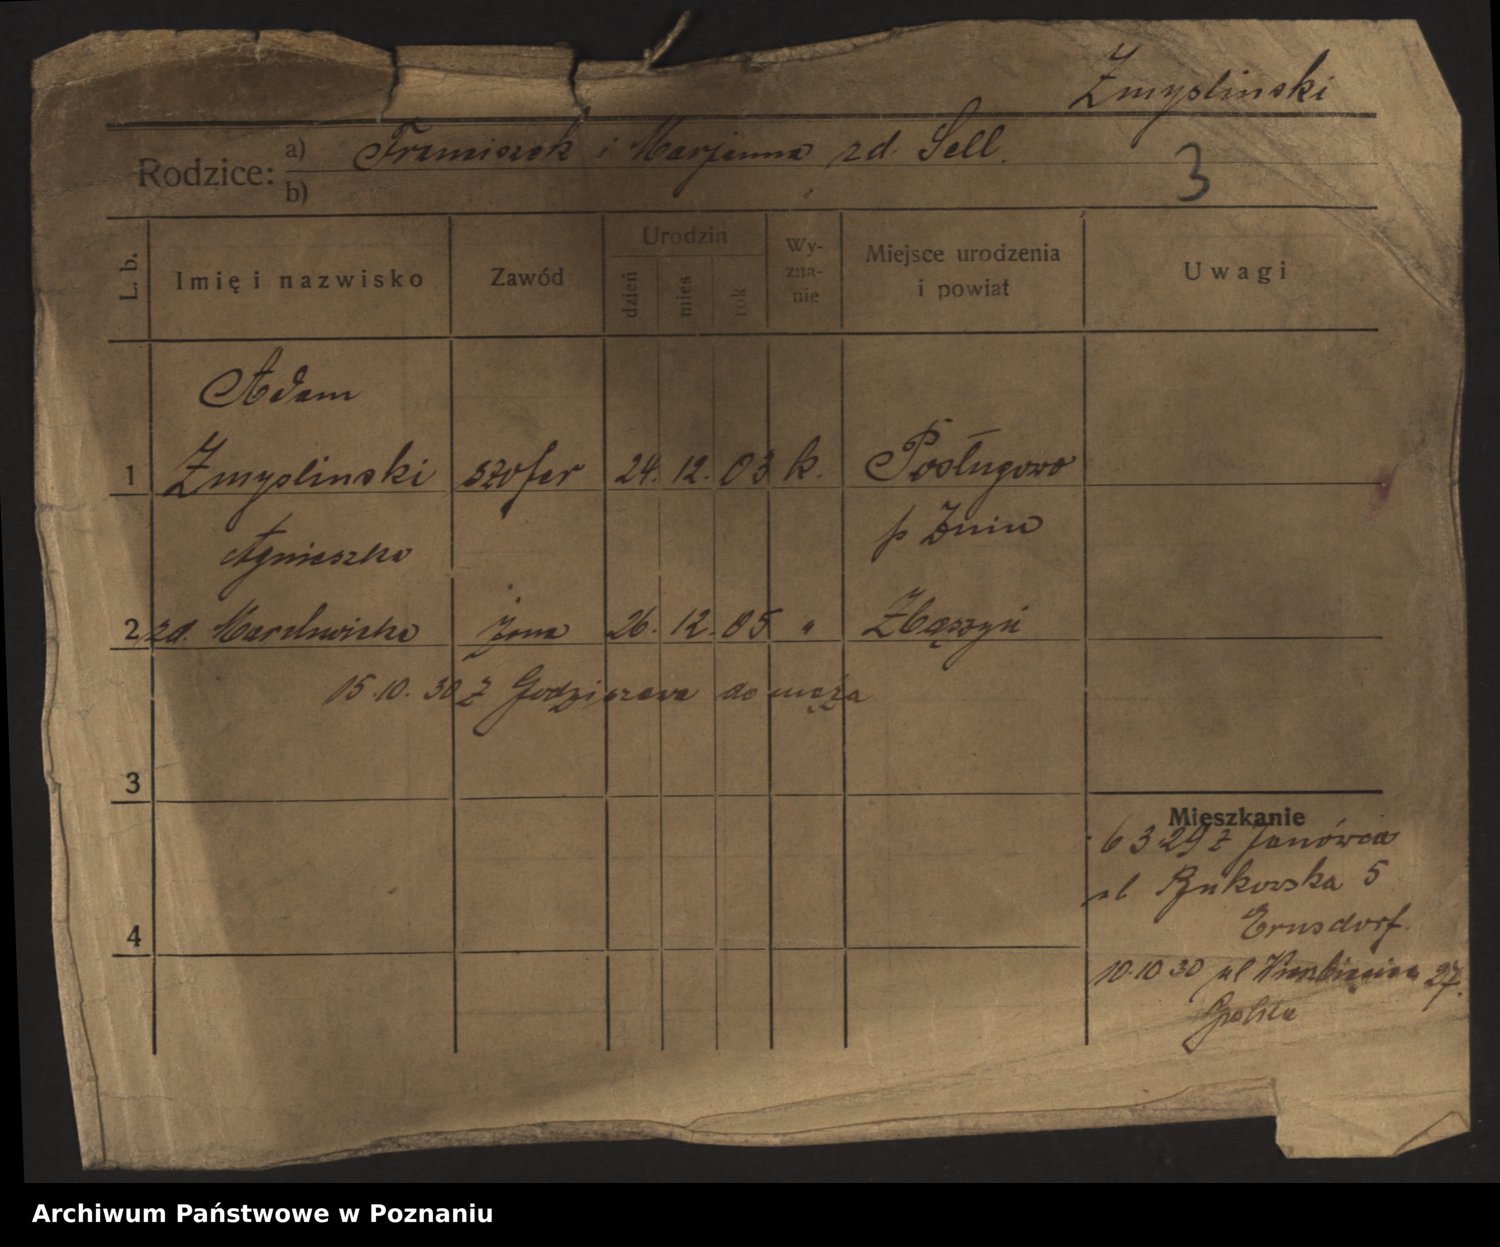 Zmyslinski
Rodzice: a) Franciszek i Marjanna zd. Sell.
b)
3
L. b. Imię i nazwisko Zawód Urodzin dzień mies rok Wy-zna-nie Miejsce urodzenia i powiat Uwagi
Adam
1 Zmyslinski szofer 24. 12. 03 k. Posługowo
p Żnin
Agnieszka
2 zd. żona 26. 12. 05 " Zbąszyń
15.10.30 z Godziszewa do męża
3
Mieszkanie
6 3 29 z Janówca
ul Bukowska 5
Ernsdorf.
4
10.10 30 ul Wierzbięcice 27.